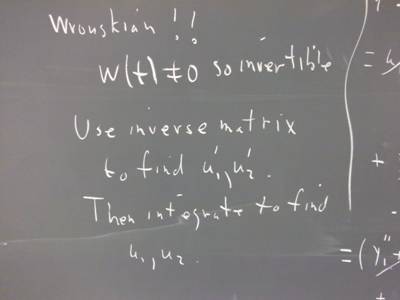 Wronskian !!
W(t) ≠ 0 so invertible
Use inverse matrix
to find u₁', u₂'.
Then integrate to find
u₁, u₂.
=
+
= (y₁''
+